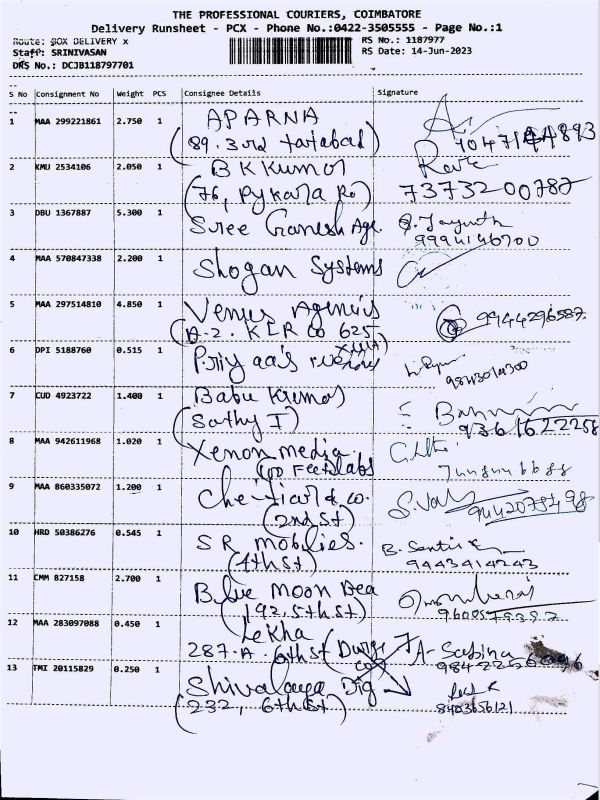 THE PROFESSIONAL COURIERS, COIMBATORE
Delivery Runsheet - PCX - Phone No.:0422-3505555 - Page No.:1
Route: BOX DELIVERY x RS No.: 1187977
Staff: SRINIVASAN RS Date: 14-Jun-2023
DRS No.: DCJB118797701
S No Consignment No Weight PCS Consignee Details Signature
1 MAA 299221861 2.750 1 APARNA
(89. 3rd tatabad)
2 KMU 2534106 2.050 1 B K Kumar
(76, Pykara Ro) 7373200787
3 DBU 1367887 5.300 1 Sree Ganesh Age
9994146700
4 MAA 570847338 2.200 1 Shogan Systems
5 MAA 297514810 4.850 1 Venus Agencies
(A-2. KLR Co 625 9944296587
6 DPI 5188760 0.515 1 Priya
9843014300
7 CUD 4923722 1.400 1 Babu Kumar
(Sathy I) 9361622258
8 MAA 942611968 1.020 1 Xenon media
100 Feet
9 MAA 860335072 1.200 1 & co.
(2nd St)
10 HRD 50386276 0.545 1 SR mobiles. B.
(4th St) 9443414243
11 CMM 827158 2.700 1 Blue Moon
(192, 5th St)
12 MAA 283097088 0.450 1 Lekha
287-A. 6th St A- Sabina
13 TMI 20115829 0.250 1 Shivalaya
(232, 6th St) 8403656121